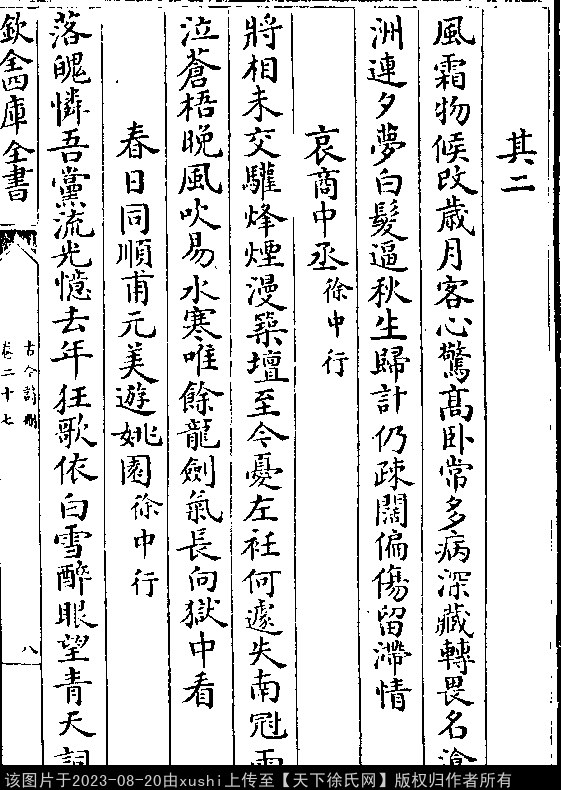 其二
風霜物候改歲月客心驚髙卧常多病深藏轉畏名滄
洲連夕夢白髮逼秋生歸計仍疎闊偏傷留滯情
哀商中丞徐中行
將相未交驩烽煙漫築壇至今憂左衽何遽失南冠雨
泣蒼梧晚風吹易水寒唯餘龍劍氣長向獄中看
春日同順甫元美遊姚園徐中行
落魄憐吾黨流光憶去年狂歌依白雪醉眼望青天詞
欽定四庫全書
古今詩刪
卷二十七
八
该图片于2023-08-20由xushi上传至【天下徐氏网】版权归作者所有